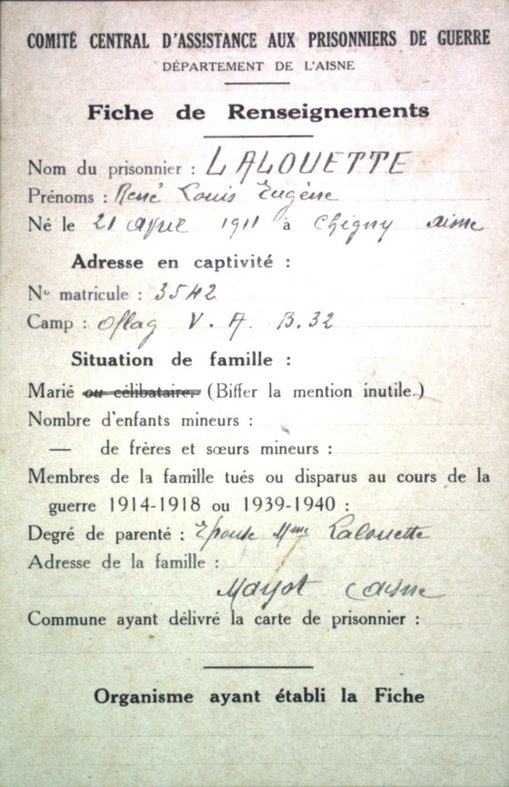 COMITÉ CENTRAL D'ASSISTANCE AUX PRISONNIERS DE GUERRE
DÉPARTEMENT DE L'AISNE
Fiche de Renseignements
Nom du prisonnier : LALOUETTE
Prénoms : René Louis Eugène
Né le 21 avril 1911 à Chigny aisne
Adresse en captivité :
No matricule : 3542
Camp : Oflag V. A. B.32
Situation de famille :
Marié ou célibataire. (Biffer la mention inutile.)
Nombre d'enfants mineurs :
— de frères et sœurs mineurs :
Membres de la famille tués ou disparus au cours de la
guerre 1914-1918 ou 1939-1940 :
Degré de parenté : Epouse Mme Lalouette
Adresse de la famille :
Mayot Aisne
Commune ayant délivré la carte de prisonnier :
Organisme ayant établi la Fiche